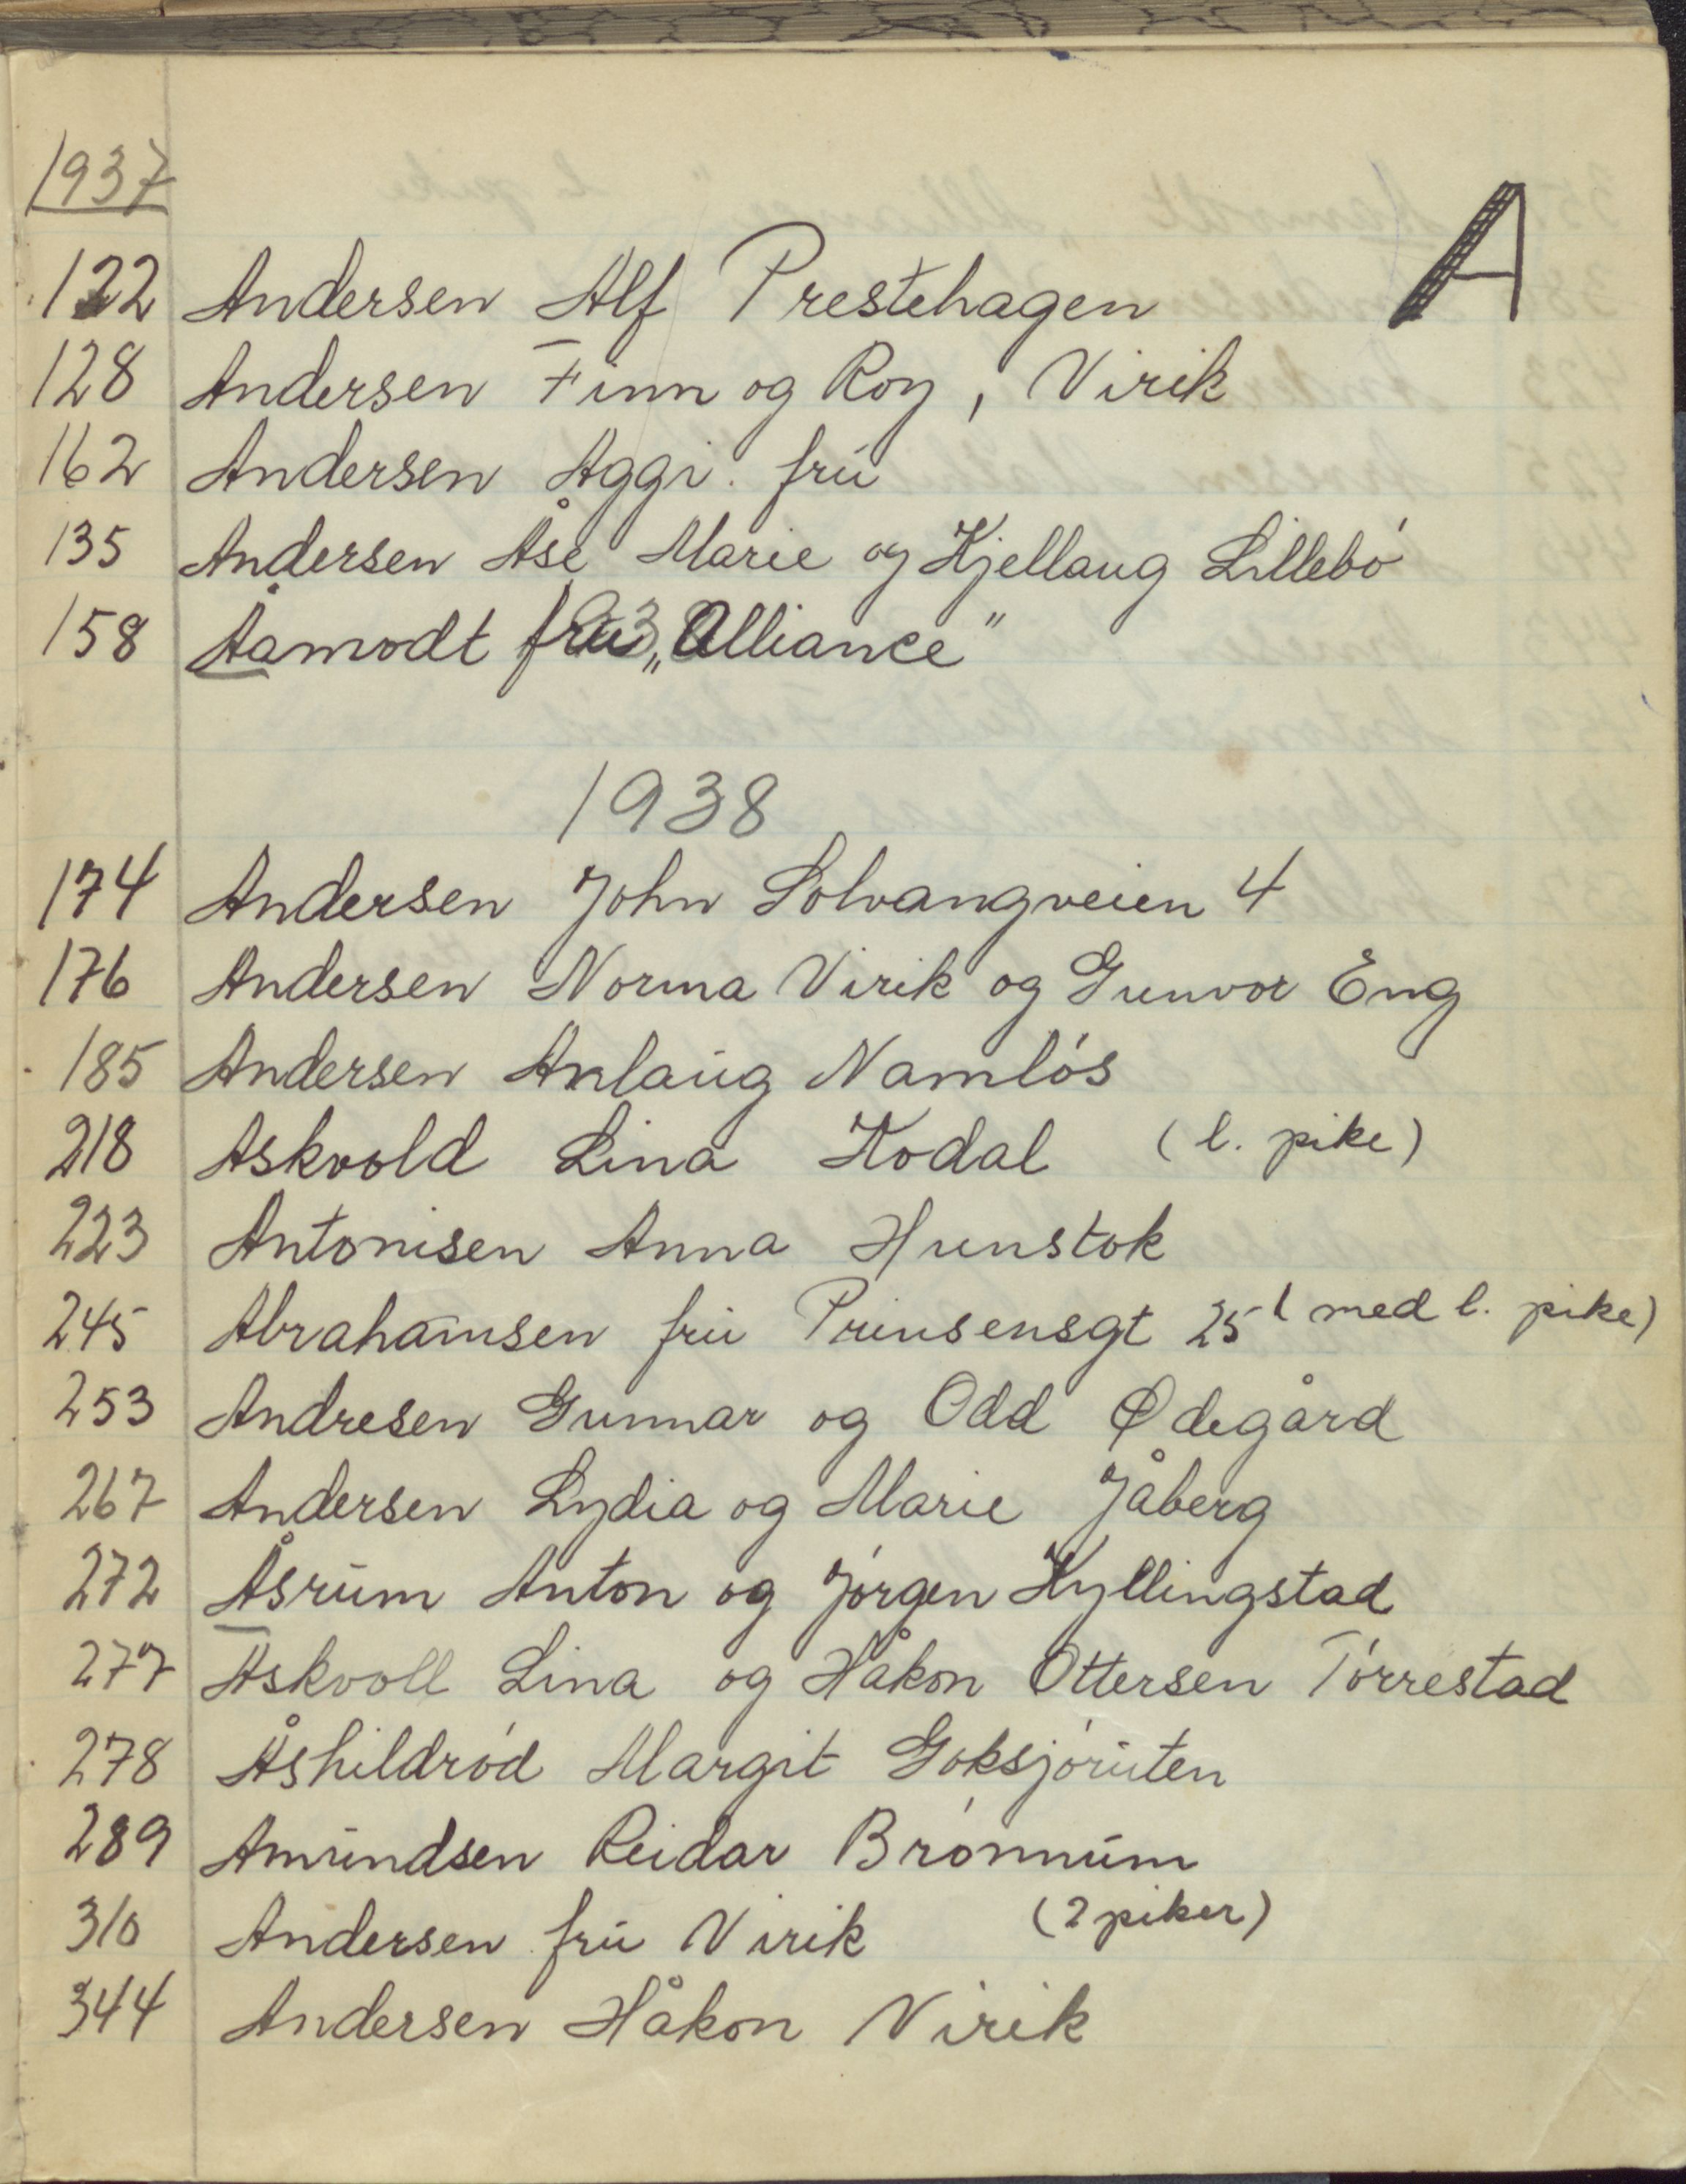 1937
A
122 Andersen Alf Prestehagen
128 Andersen Finn og Roy, Virik
162 Andersen Aggi. frú
135 Andersen Åse Marie og Kjellaug Lillebó
158 Åamodt fru „Alliance"
1938
174 Andersen John Solvangveien 4
176 Andersen Norma Virik og Gunvor Eng
185 Andersen Anlaúg Namlós
218 Askvold Lina Kodal (l. pike)
223 Antonisen Anna Hunstok
245 Abrahamsen frú Prinsensgt 25 (med l. pike)
253 Andresen Gunnar og Odd Ødegård
267 Andersen Lydia og Marie Jåberg
272 Åsrúm Anton og Jórgen Hyllingstad
277 Askvoll Lina og Håkon Ottersen Tórrestad
278 Åshildród Margit Goksjórúten
289 Amúndsen Reidar Brónnúm
310 Andersen frú Virik (2 piker)
344 Andersen Håkon Virik